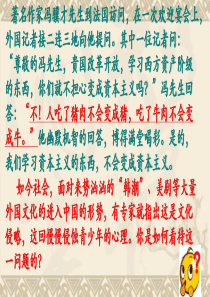 著名作家冯骥才先生到法国访问,在一次欢迎宴会上,
外国记者接二连三地向他提问。其中一位记者问:
“尊敬的冯先生,贵国改革开放,学习西方资产阶级
的东西,你们就不担心变成资本主义吗?”冯先生回
答:“不!人吃了猪肉不会变成猪,吃了牛肉不会变
成牛。”他幽默机智的回答,博得满堂喝彩。是的,
我们学习资本主义的东西,不会变成资本主义。
如今社会,面对来势汹汹的“韩潮”、美剧等大量
外国文化的进入中国的形势,有专家就指出这是文化
侵略,这回慢慢侵蚀青少年的心理。你是如何看待这
一问题的?